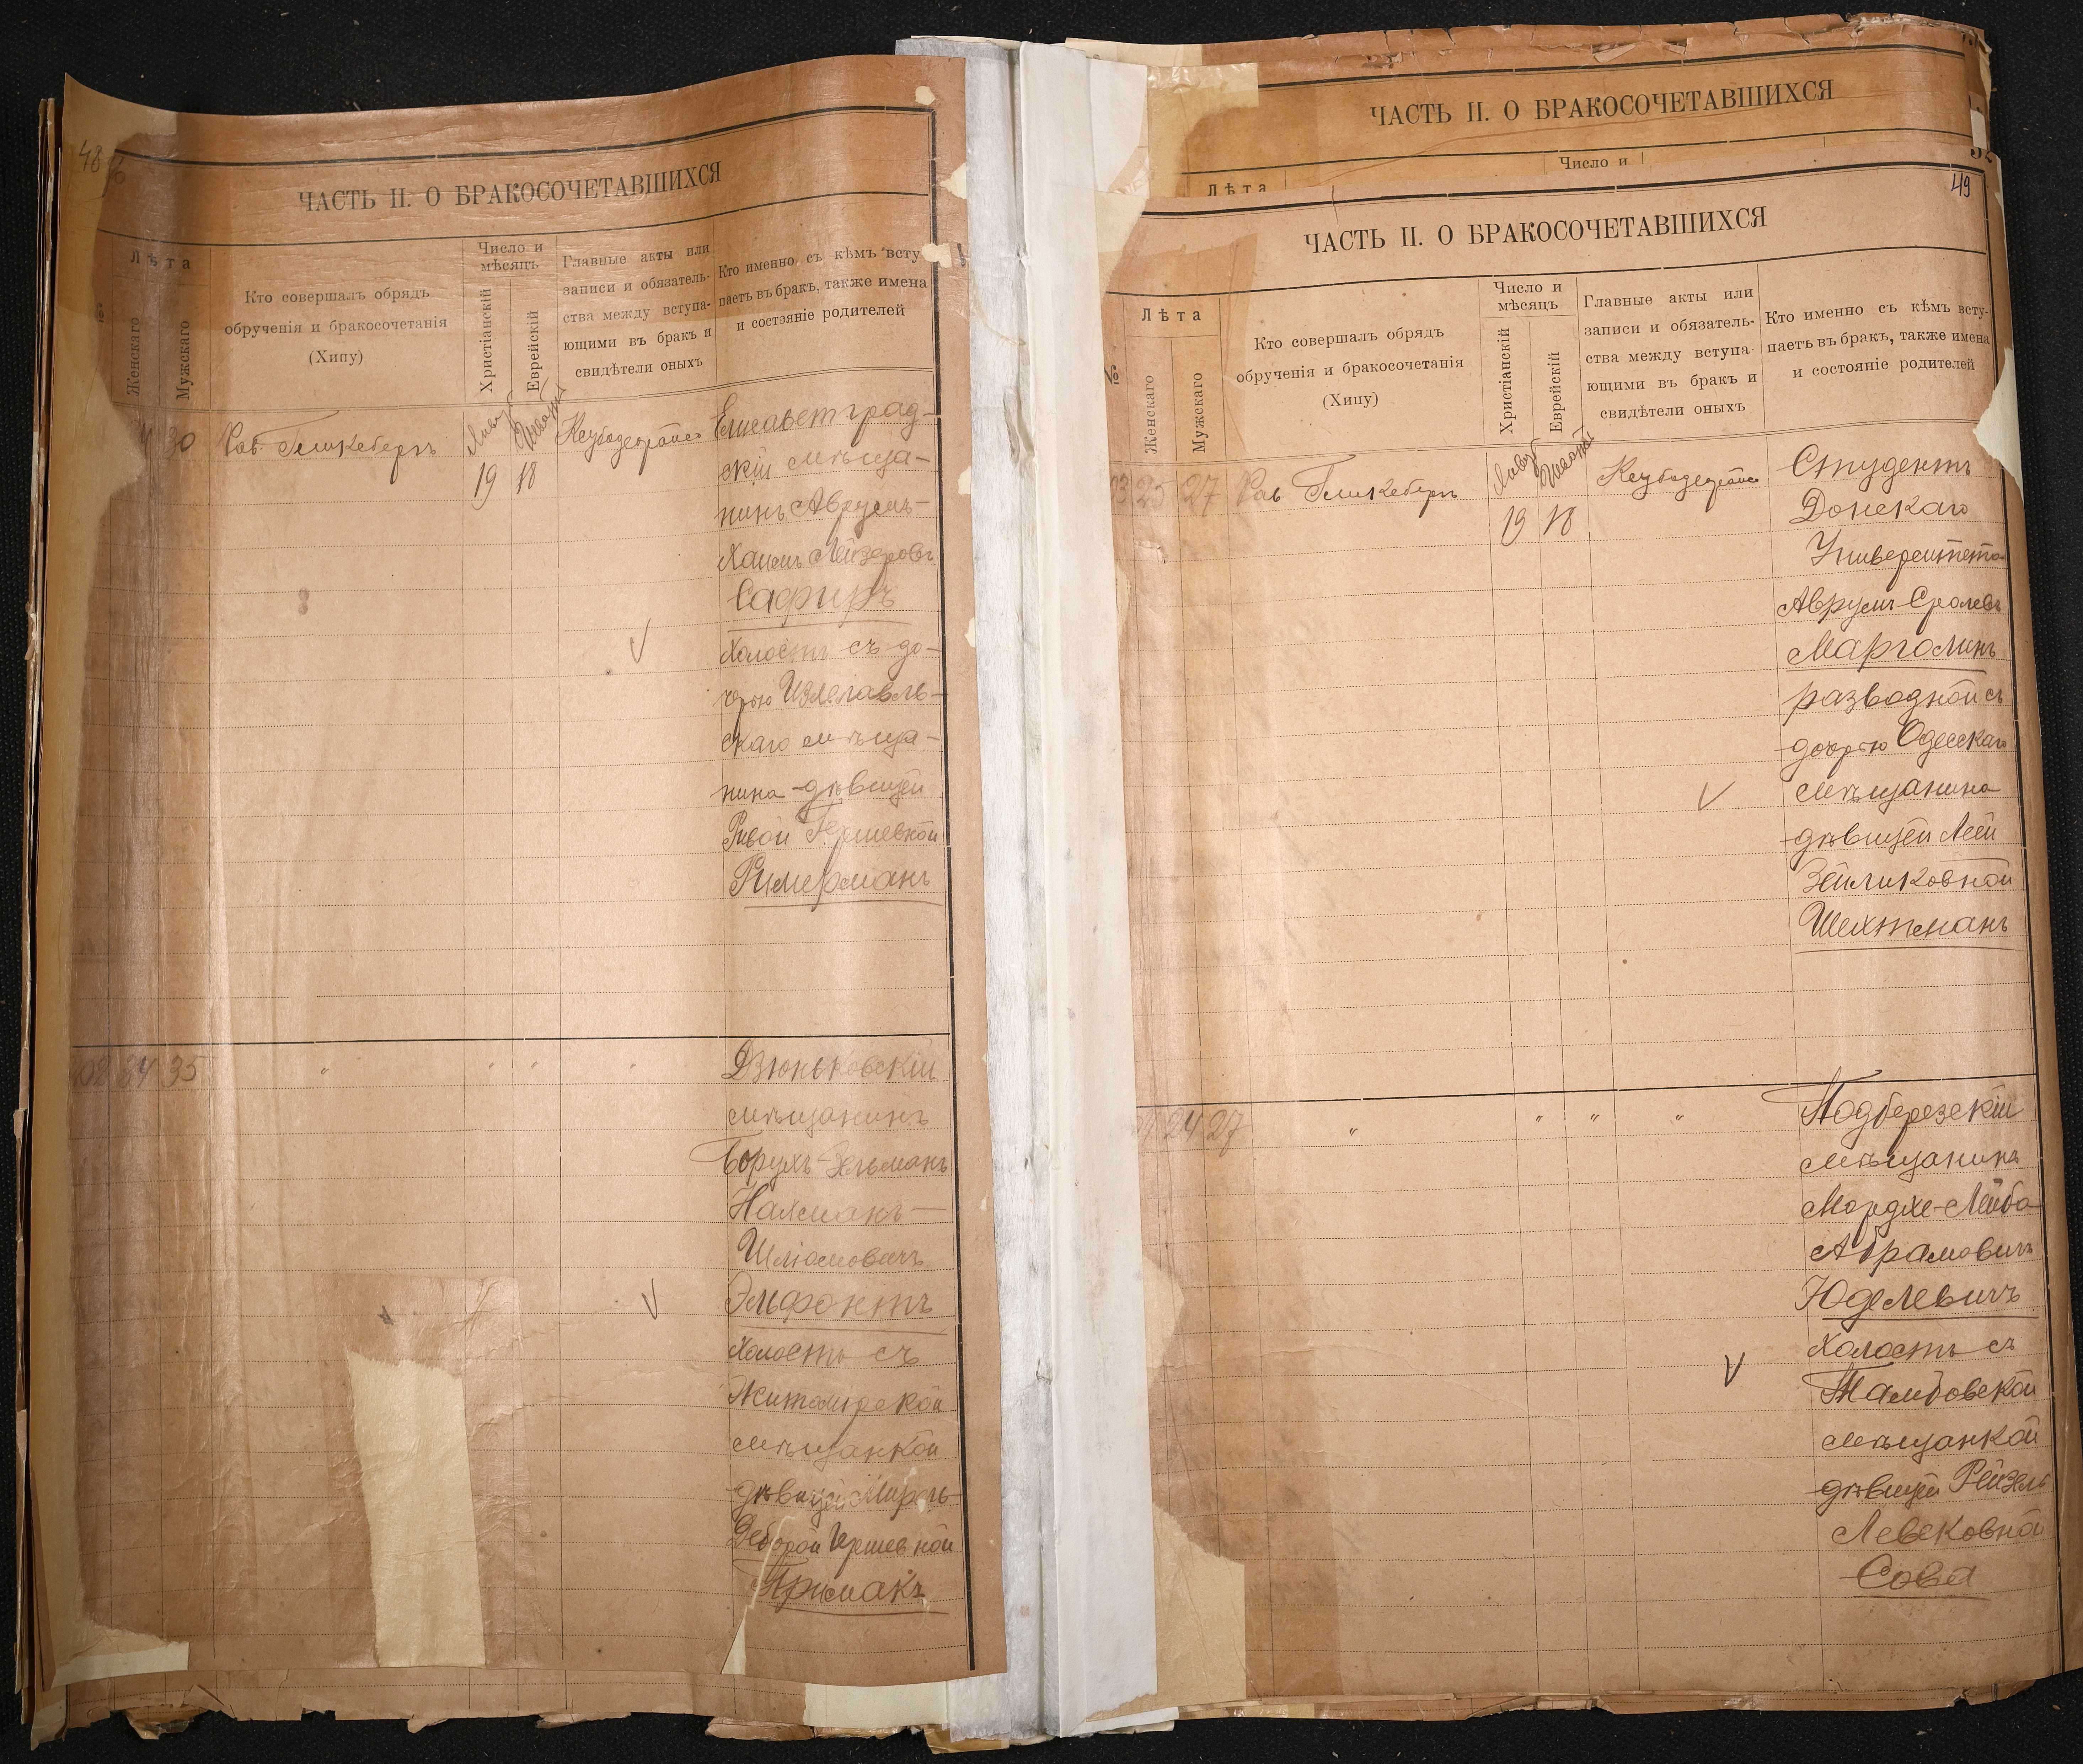 48
ЧАСТЬ II. О БРАКОСОЧЕТАВШИХСЯ
№
Лѣта
Женскаго
Мужскаго
Кто совершалъ обрядъ
обрученія и бракосочетанія
(Хипу)
Число и
мѣсяцъ
Христіанскій
Еврейскій
Главные акты или
записи и обязатель-
ства между вступа-
ющими въ бракъ и
свидѣтели оныхъ
Кто именно съ кѣмъ всту
паетъ въ бракъ, также имена
и состояніе родителей
30
Раб. Гликсбергъ
Январ
19
Шват
18
Елисаветград-
скій мѣща-
нинъ Аврумъ-
Хаимъ Лейзеровъ
Сафиръ
холостъ съ до-
черью Изяславль-
скаго мѣща-
нина - дѣвицей
Ривой Гершевной
Римерманъ
102 24 35
"
"
"
"
Дзюньковскій
мѣщанинъ
Борухъ-Зельманъ
Нахманъ-
Шліомовичъ
Эльфонтъ
холостъ съ
Житомирской
мѣщанкой
дѣвицей Мирель-
Деборой Гершевной
Примакъ
ЧАСТЬ II. О БРАКОСОЧЕТАВШИХСЯ
Число и
Лѣта
49
ЧАСТЬ II. О БРАКОСОЧЕТАВШИХСЯ
№
Лѣта
Женскаго
Мужскаго
Кто совершалъ обрядъ
обрученія и бракосочетанія
(Хипу)
Число и
мѣсяцъ
Христіанскій
Еврейскій
Главные акты или
записи и обязатель-
ства между вступа-
ющими въ бракъ и
свидѣтели оныхъ
Кто именно съ кѣмъ всту-
паетъ въ бракъ, также имена
и состояніе родителей
25 27
Раб Гликсбергъ
Январ
19
Шват
18
Студентъ
Донскаго
Университета
Аврумъ Сролевъ
Марголинъ
разводной съ
дочерью Одесскаго
мѣщанина
дѣвицей Леей
Зейликовной
Шехтманъ
24 27
"
"
"
"
Подберезскій
мѣщанинъ
Мордхе-Лейба
Абрамовичъ
Юделевичъ
холостъ съ
Тамбовской
мѣщанкой
дѣвицей Рейзель
Левековной
Сова